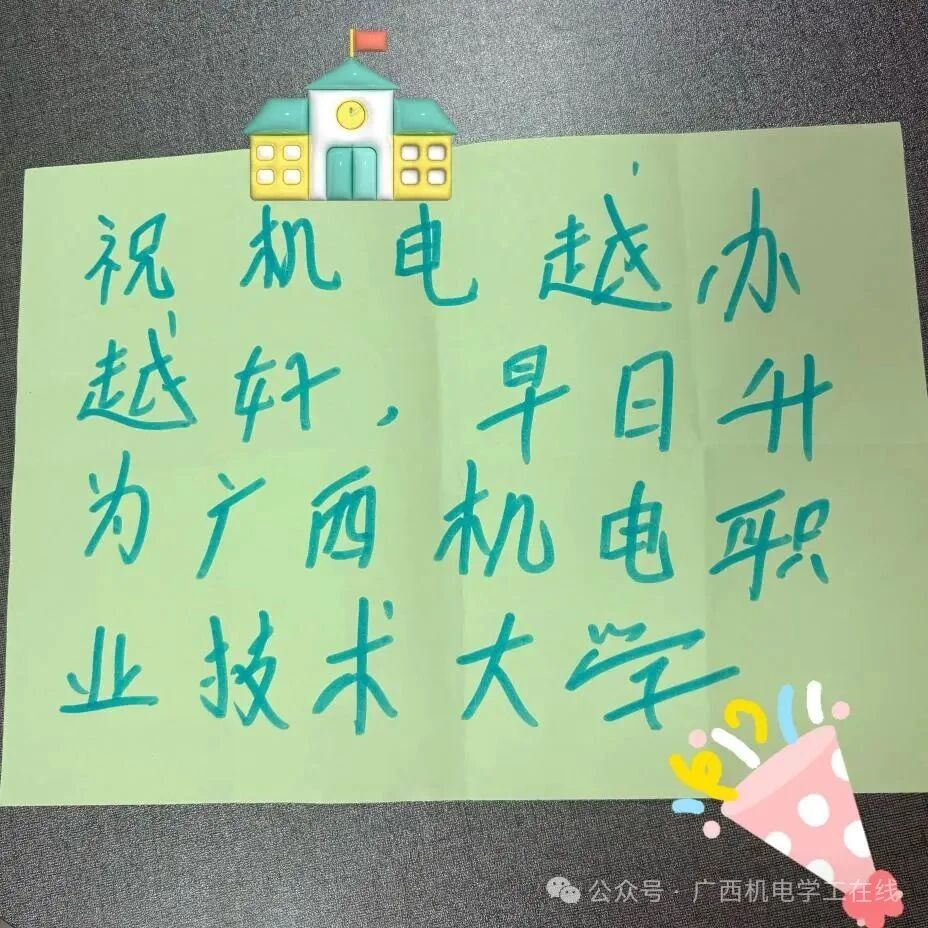 祝机电越办
越好，早日升
为广西机电职
业技术大学
公众号·广西机电学工在线